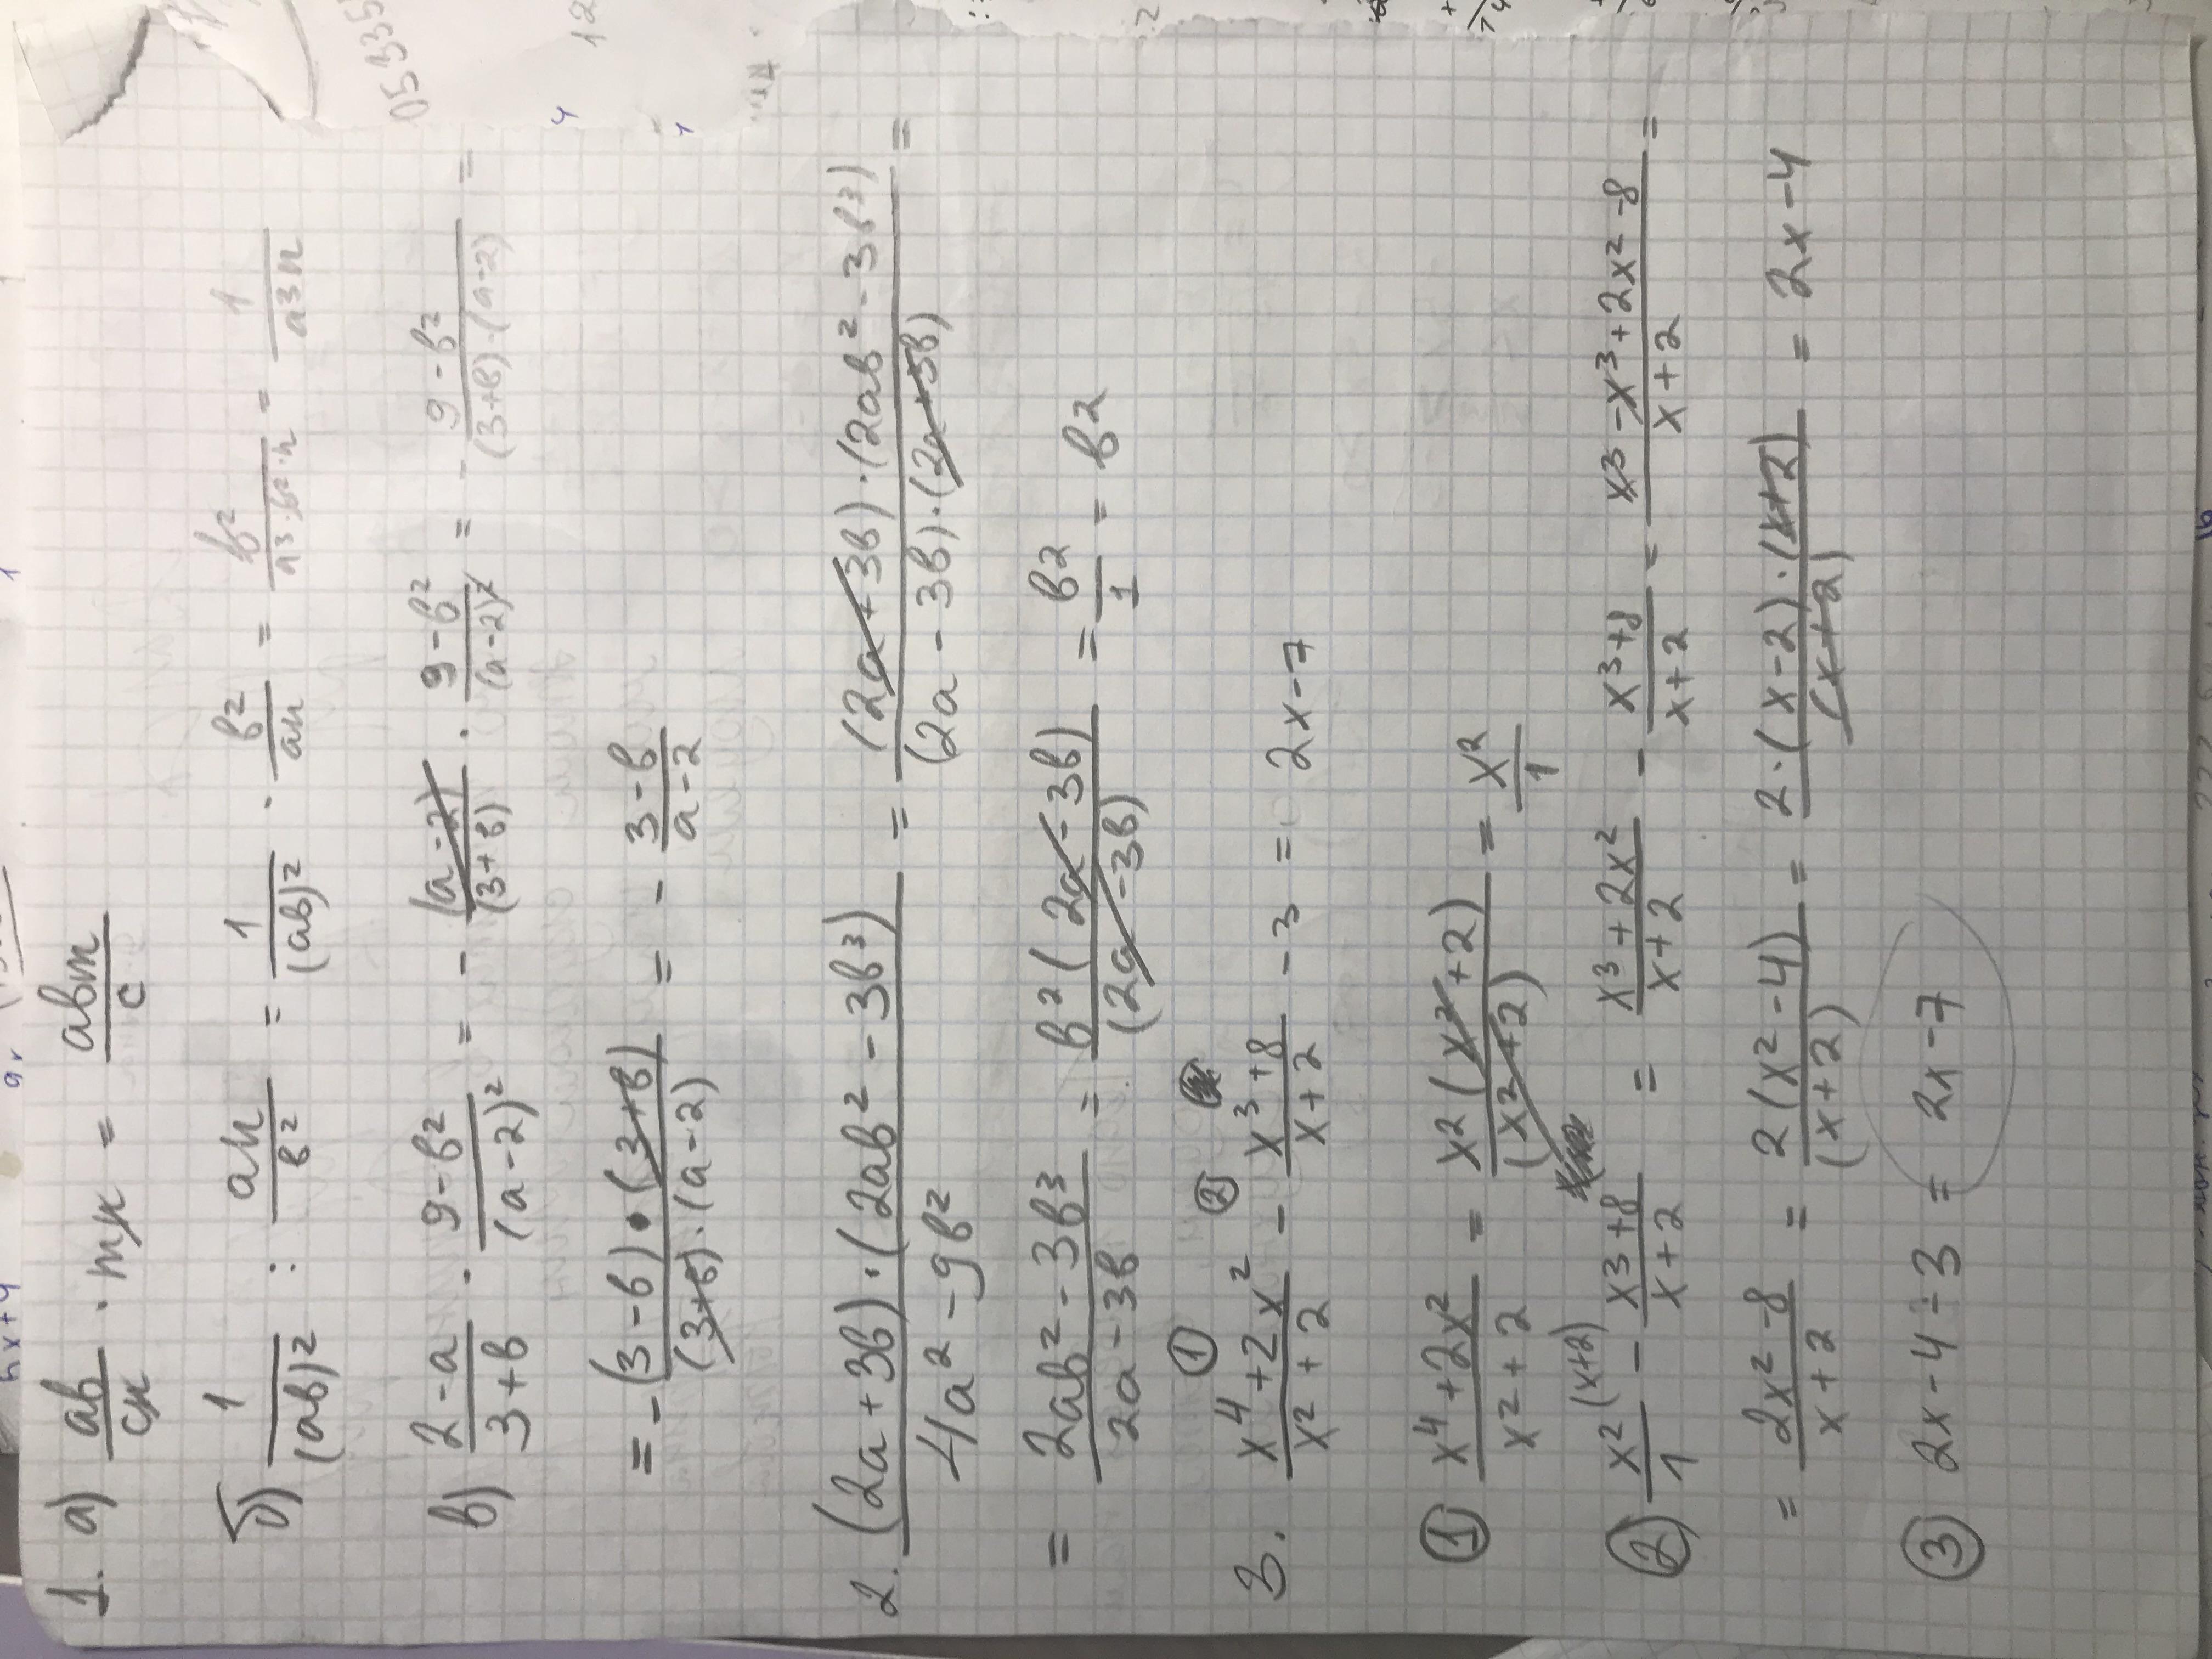 1. а) ab/cn · mn = abm/c
б) 1/(ab)² : an/b² = 1/(ab)² · b²/an = b²/a³·b²·n = 1/a³n
в) 2-a/3+b · 9-b²/(a-2)² = - (a-2)/(3+b) · 9-b²/(a-2)² = - 9-b²/(3+b)·(a-2) =
= - (3-b)·(3+b)/(3+b)·(a-2) = - 3-b/a-2
2. (2a+3b)·(2ab²-3b³)/4a²-9b² = (2a+3b)·(2ab²-3b³)/(2a-3b)·(2a+3b) =
= 2ab²-3b³/2a-3b = b²(2a-3b)/(2a-3b) = b²/1 = b²
① ②
3. x⁴+2x²/x²+2 - x³+8/x+2 - 3 = 2x-7
① x⁴+2x²/x²+2 = x²(x²+2)/(x²+2) = x²/1
② x²/1 (x+2) - x3+8/x+2 = x³+2x²/x+2 - x³+8/x+2 = x³-x³+2x²-8/x+2 =
= 2x²-8/x+2 = 2(x²-4)/(x+2) = 2·(x-2)·(x+2)/(x+2) = 2x-4
③ 2x-4-3 = 2x-7